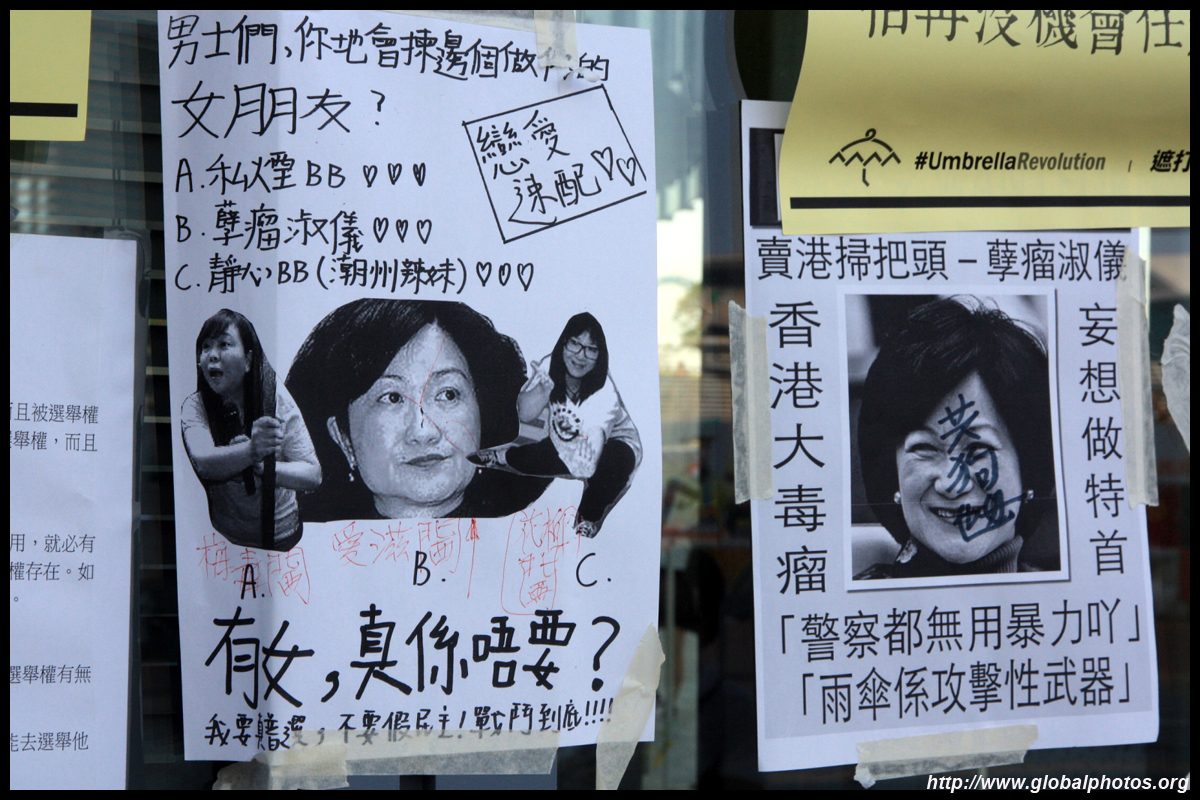 男士們,你地會揀邊個做你的
女朋友?
戀愛
速配♡♡
A.私煙BB♡♡♡
B.孽瘤淑儀♡♡♡
C.靜心BB(潮州辣妹)♡♡♡
梅毒
A.
愛滋
B.
C.
有女,真係唔要?
我要真普選,不要假民主!戰鬥到底!!!!
且被選舉權
舉權,而且
用,就必有
權存在。如
。
選舉權有無
去選舉他
怕再沒機會任
#UmbrellaRevolution
遮打
賣港掃把頭–孽瘤淑儀
香港大毒瘤
妄想做特首
共狗
「警察都無用暴力吖」
「雨傘係攻擊性武器」
http://www.globalphotos.org